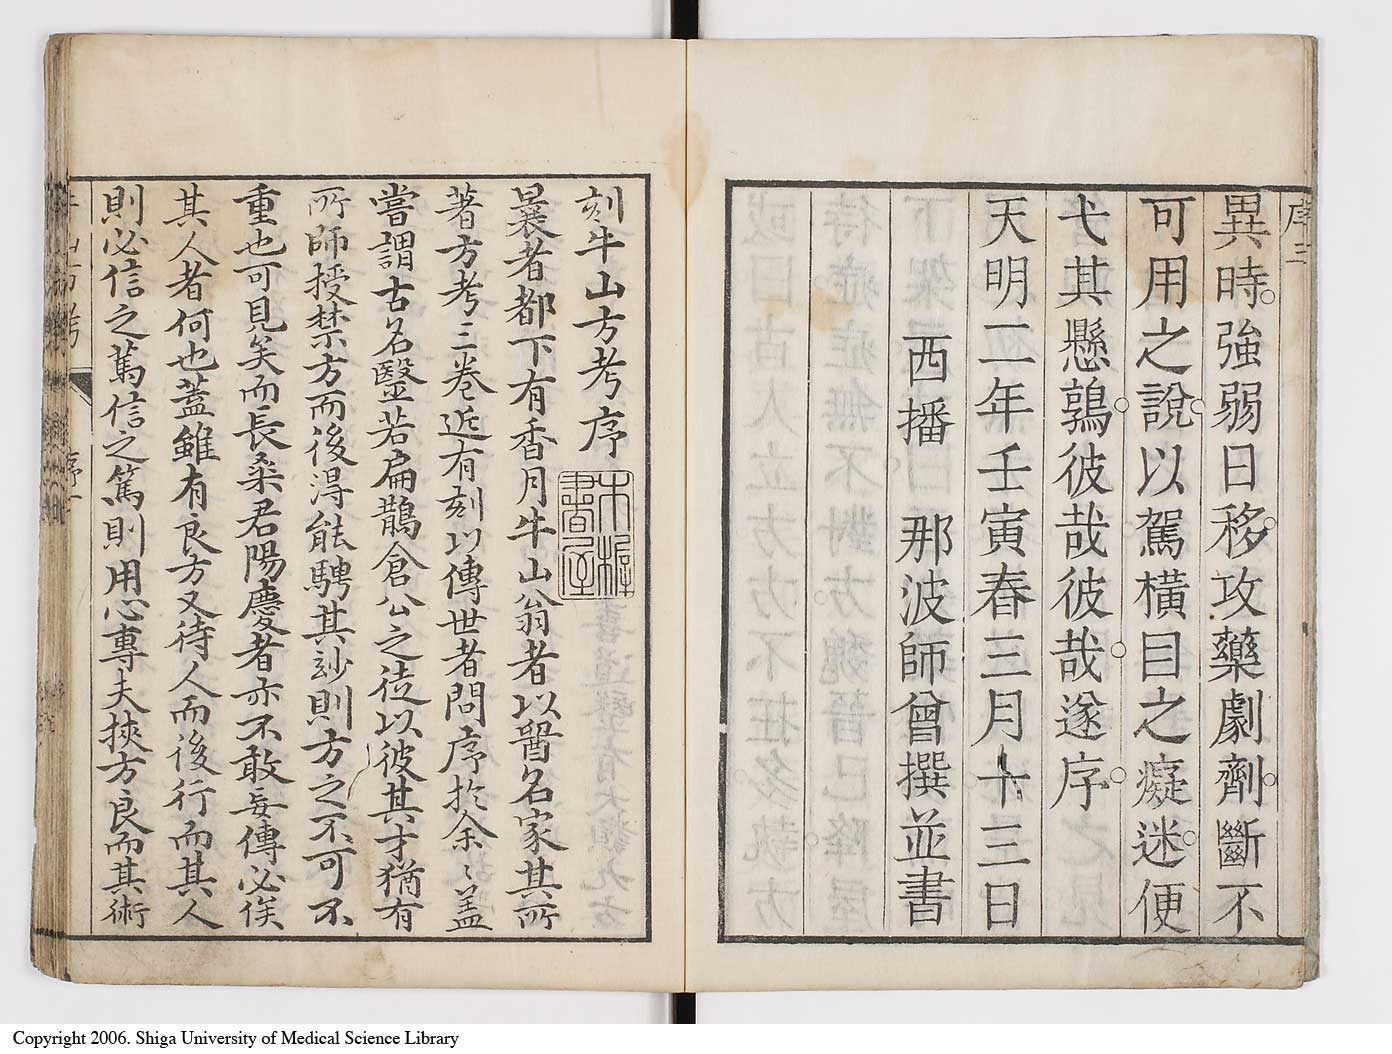 序三
異時強弱日移攻藥劇劑斷不
可用之說以駕橫目之癡迷便
弋其懸鶉彼哉彼哉遂序
天明二年壬寅春三月十三日
西播 那波師曾撰並書
刻牛山方考序
曩者都下有香月牛山翁者以醫名家其所
著方考三卷近有刻以傳世者問序於余〻蓋
嘗謂古名醫若扁鵲倉公之徒以彼其才猶有
所師授禁方而後得能騁其玅則方之不可不
重也可見矣而長桑君陽慶者亦不敢妄傳必俟
其人者何也蓋雖有良方又待人而後行而其人
則必信之篤信之篤則用心專夫挾方良而其術
序一
Copyright 2006. Shiga University of Medical Science Library